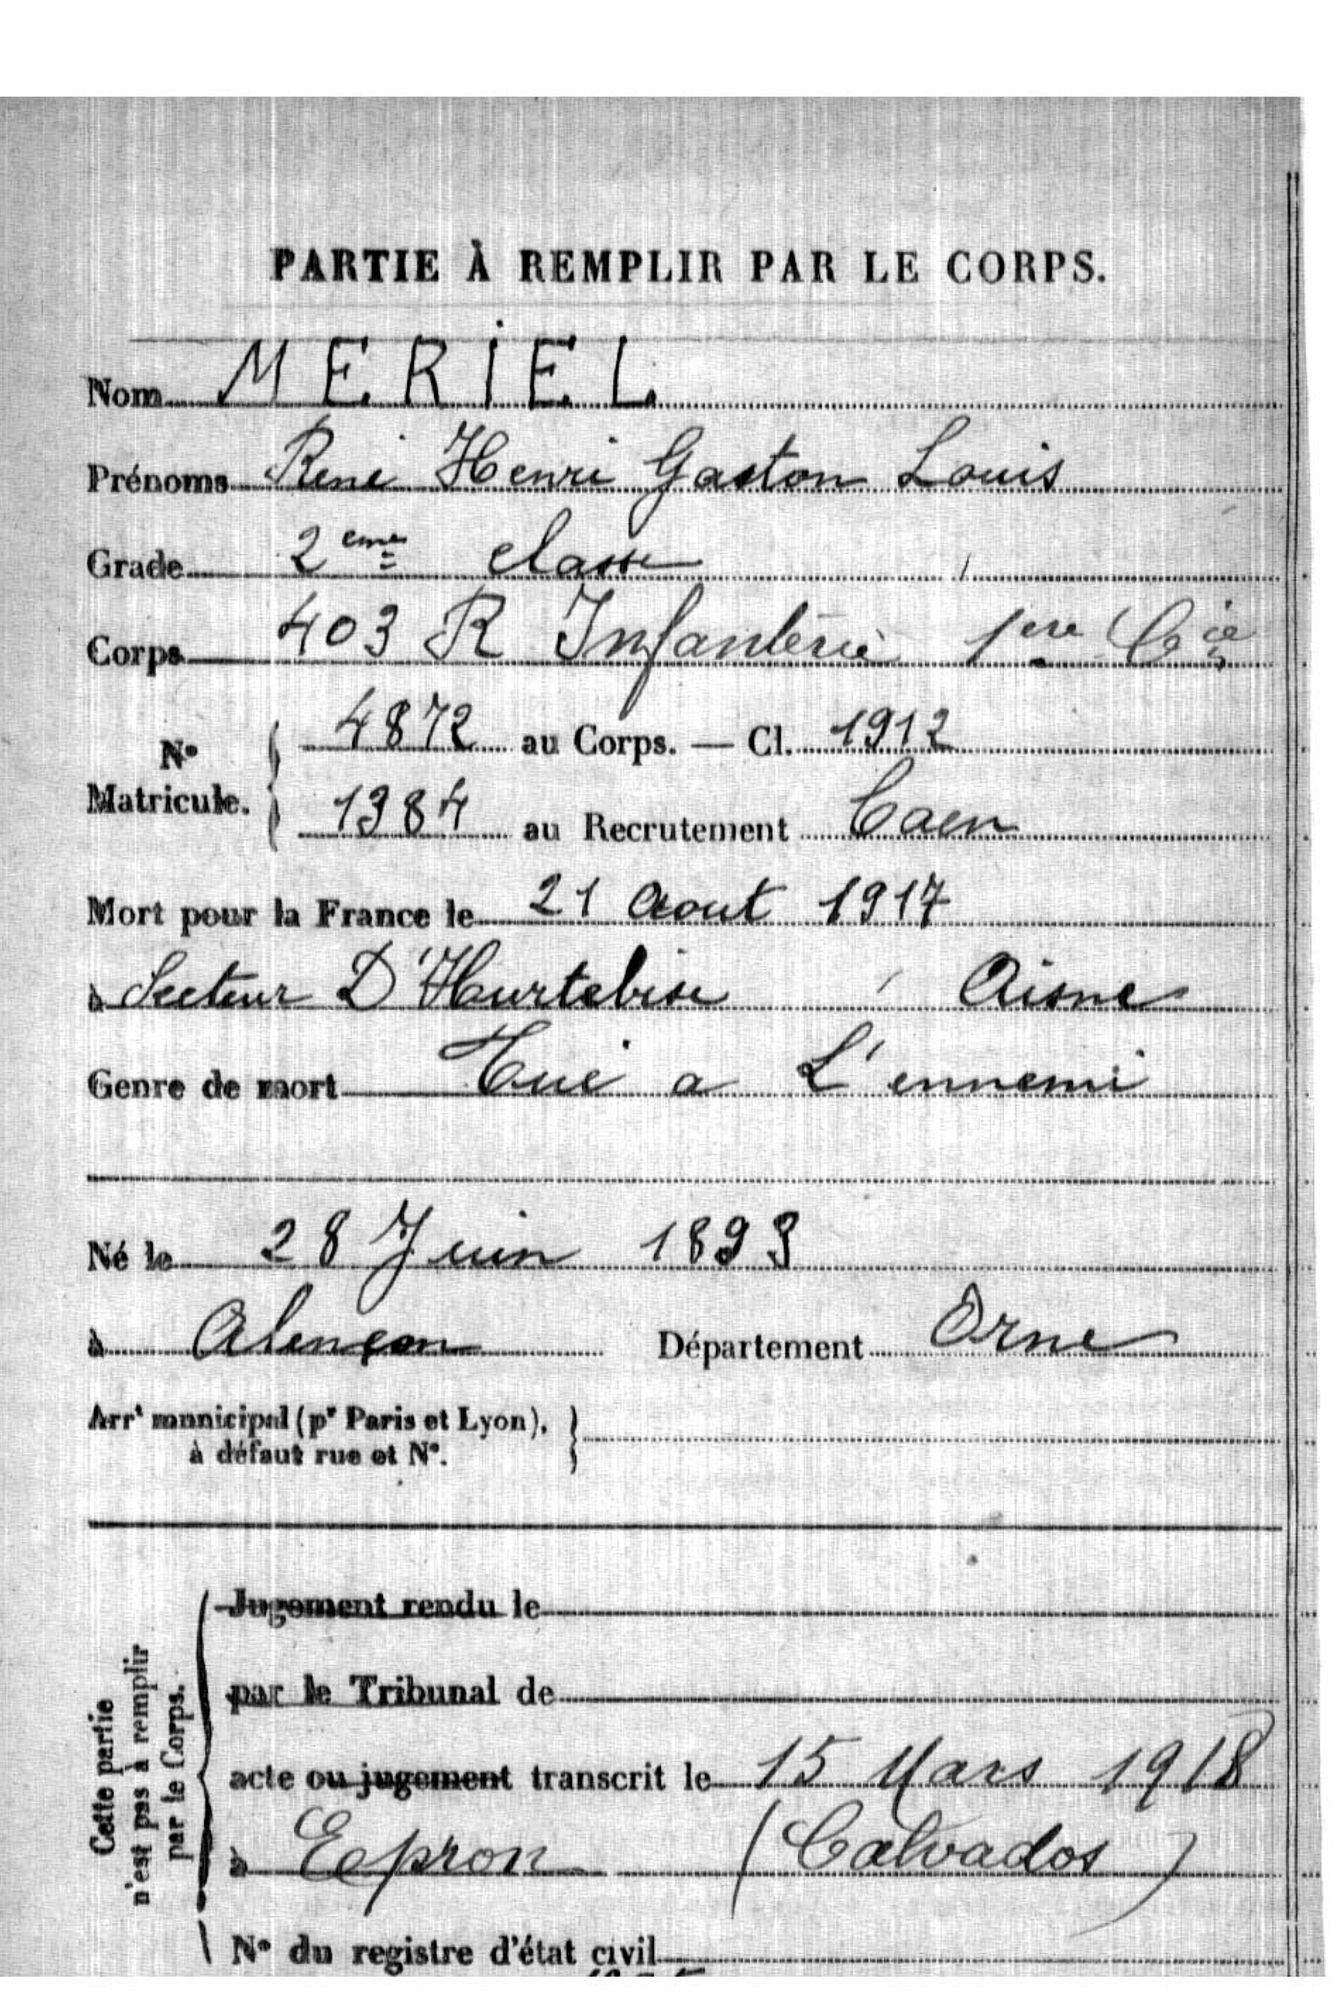 PARTIE À REMPLIR PAR LE CORPS.
Nom MERIEL
Prénoms René Henri Gaston Louis
Grade 2eme classe
Corps 403 R Infanterie 1ere Cie
Nº Matricule. 4872 au Corps. — Cl. 1912
1384 au Recrutement Caen
Mort pour la France le 21 Aout 1917
à Secteur D'Hurtebise Aisne
Genre de mort Tué a L'ennemi
Né le 28 Juin 1893
à Alençon Département Orne
Arrt municipal (pr Paris et Lyon),
à défaut rue et Nº.
Cette partie
n'est pas à remplir
par le Corps.
Jugement rendu le
par le Tribunal de
acte ou jugement transcrit le 15 Mars 1918
à Epron (Calvados)
Nº du registre d'état civil